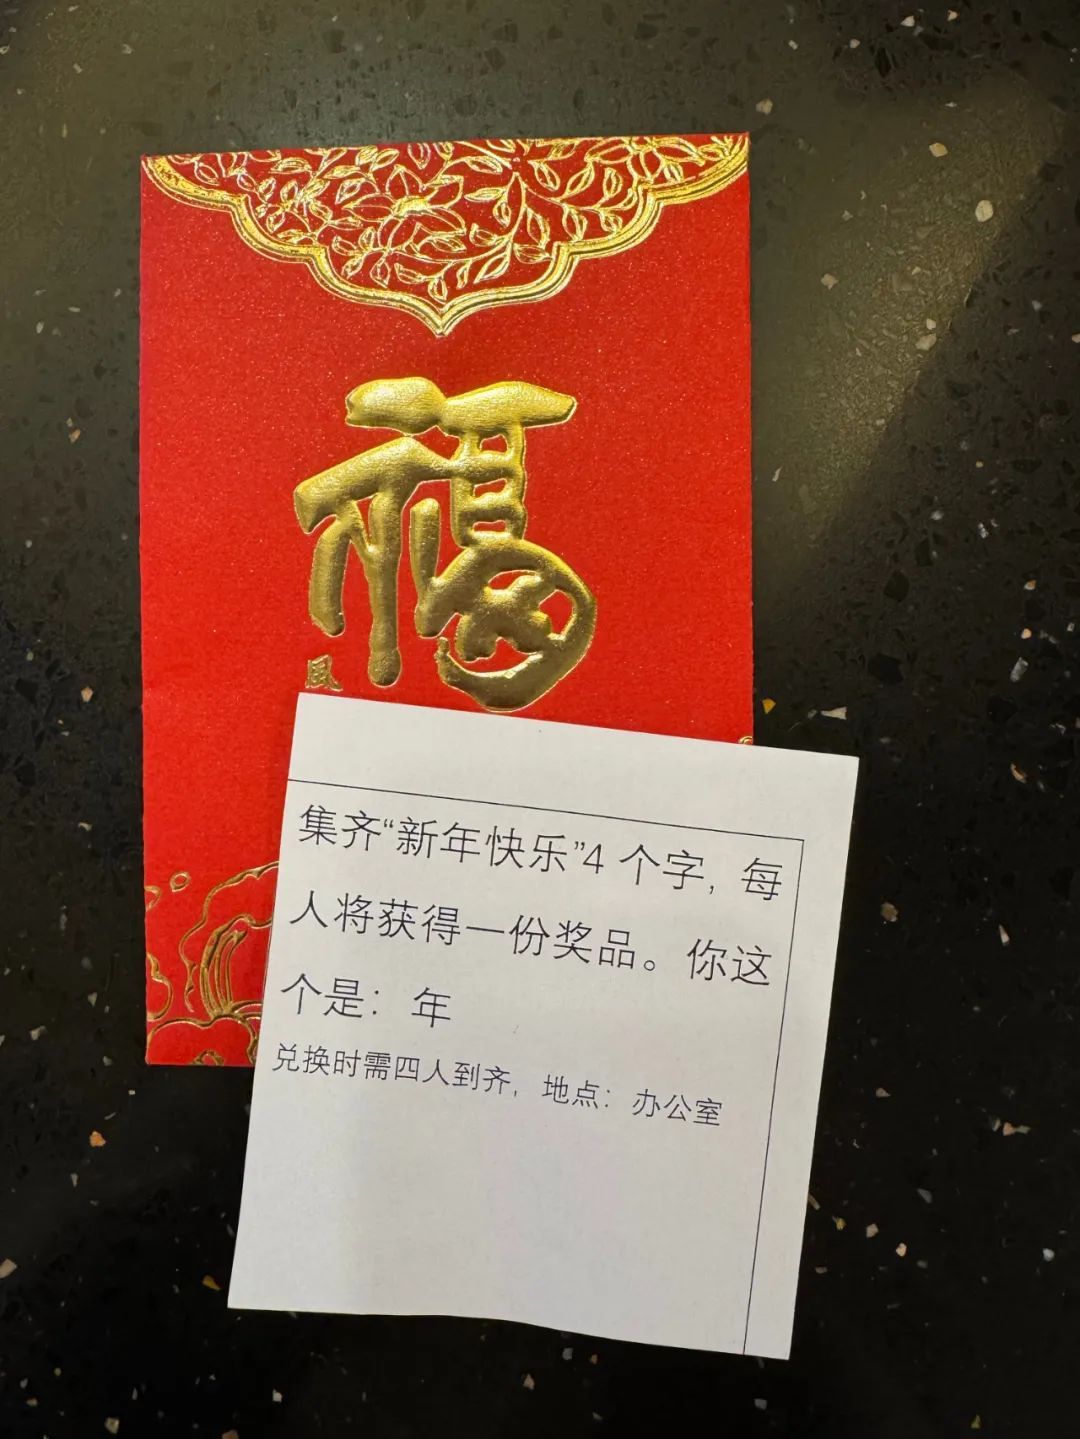 福
凤
集齐“新年快乐”4 个字，每
人将获得一份奖品。你这
个是：年
兑换时需四人到齐，地点：办公室